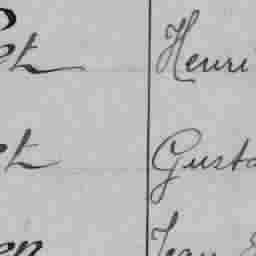 et Henri
et Gusta
en Jean